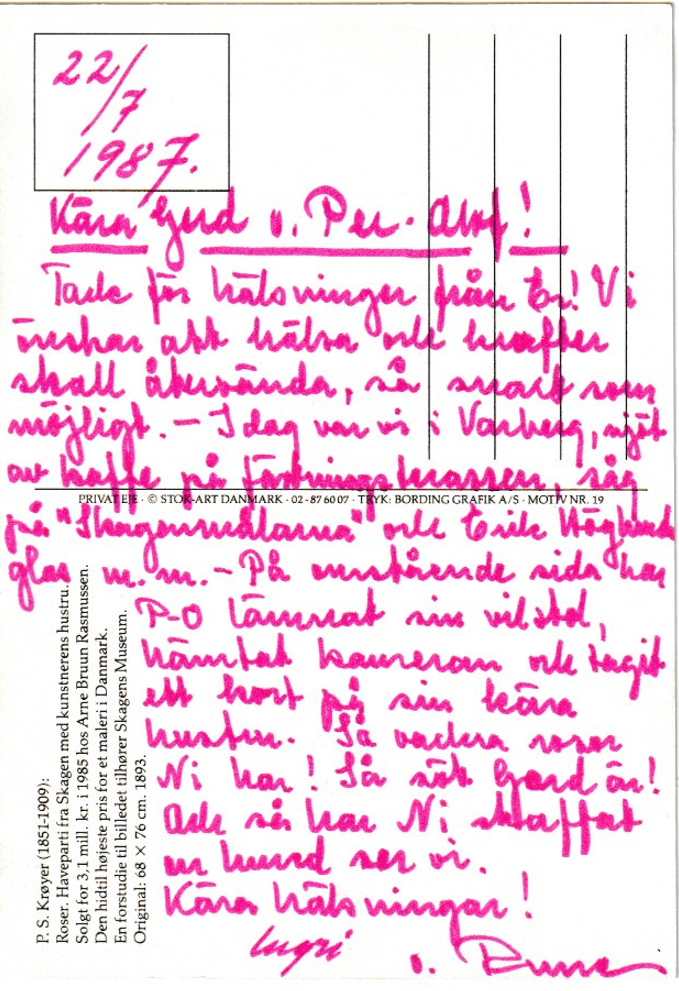 22/7
1987.
Kära Gerd o. Per-Olof!
Tack för hälsningen från Er! Vi
önskar att hälsa och krafter
skall återvända, så snart som
möjligt. – Idag var vi i Varberg, njöt
av kaffe på fästningsterrassen, såg
PRIVAT EJE · © STOK-ART DANMARK · 02-87 60 07 · TRYK: BORDING GRAFIK A/S · MOTIV NR. 19
på "Skagenmålarna" och Erik Höglunds
glas m.m. – På omstående sida har
P-O lämnat sin vilstol,
hämtat kameran och tagit
ett kort på sin kära
hustru. Så vackra rosor
Ni har! Så söt Gerd är!
Och så har Ni skaffat
en hund ser vi.
Kära hälsningar!
o. Rune
P. S. Krøyer (1851-1909):
Roser. Haveparti fra Skagen med kunstnerens hustru.
Solgt for 3,1 mill. kr. i 1985 hos Arne Bruun Rasmussen.
Den hidtil højeste pris for et maleri i Danmark.
En forstudie til billedet tilhører Skagens Museum.
Original: 68 × 76 cm. 1893.